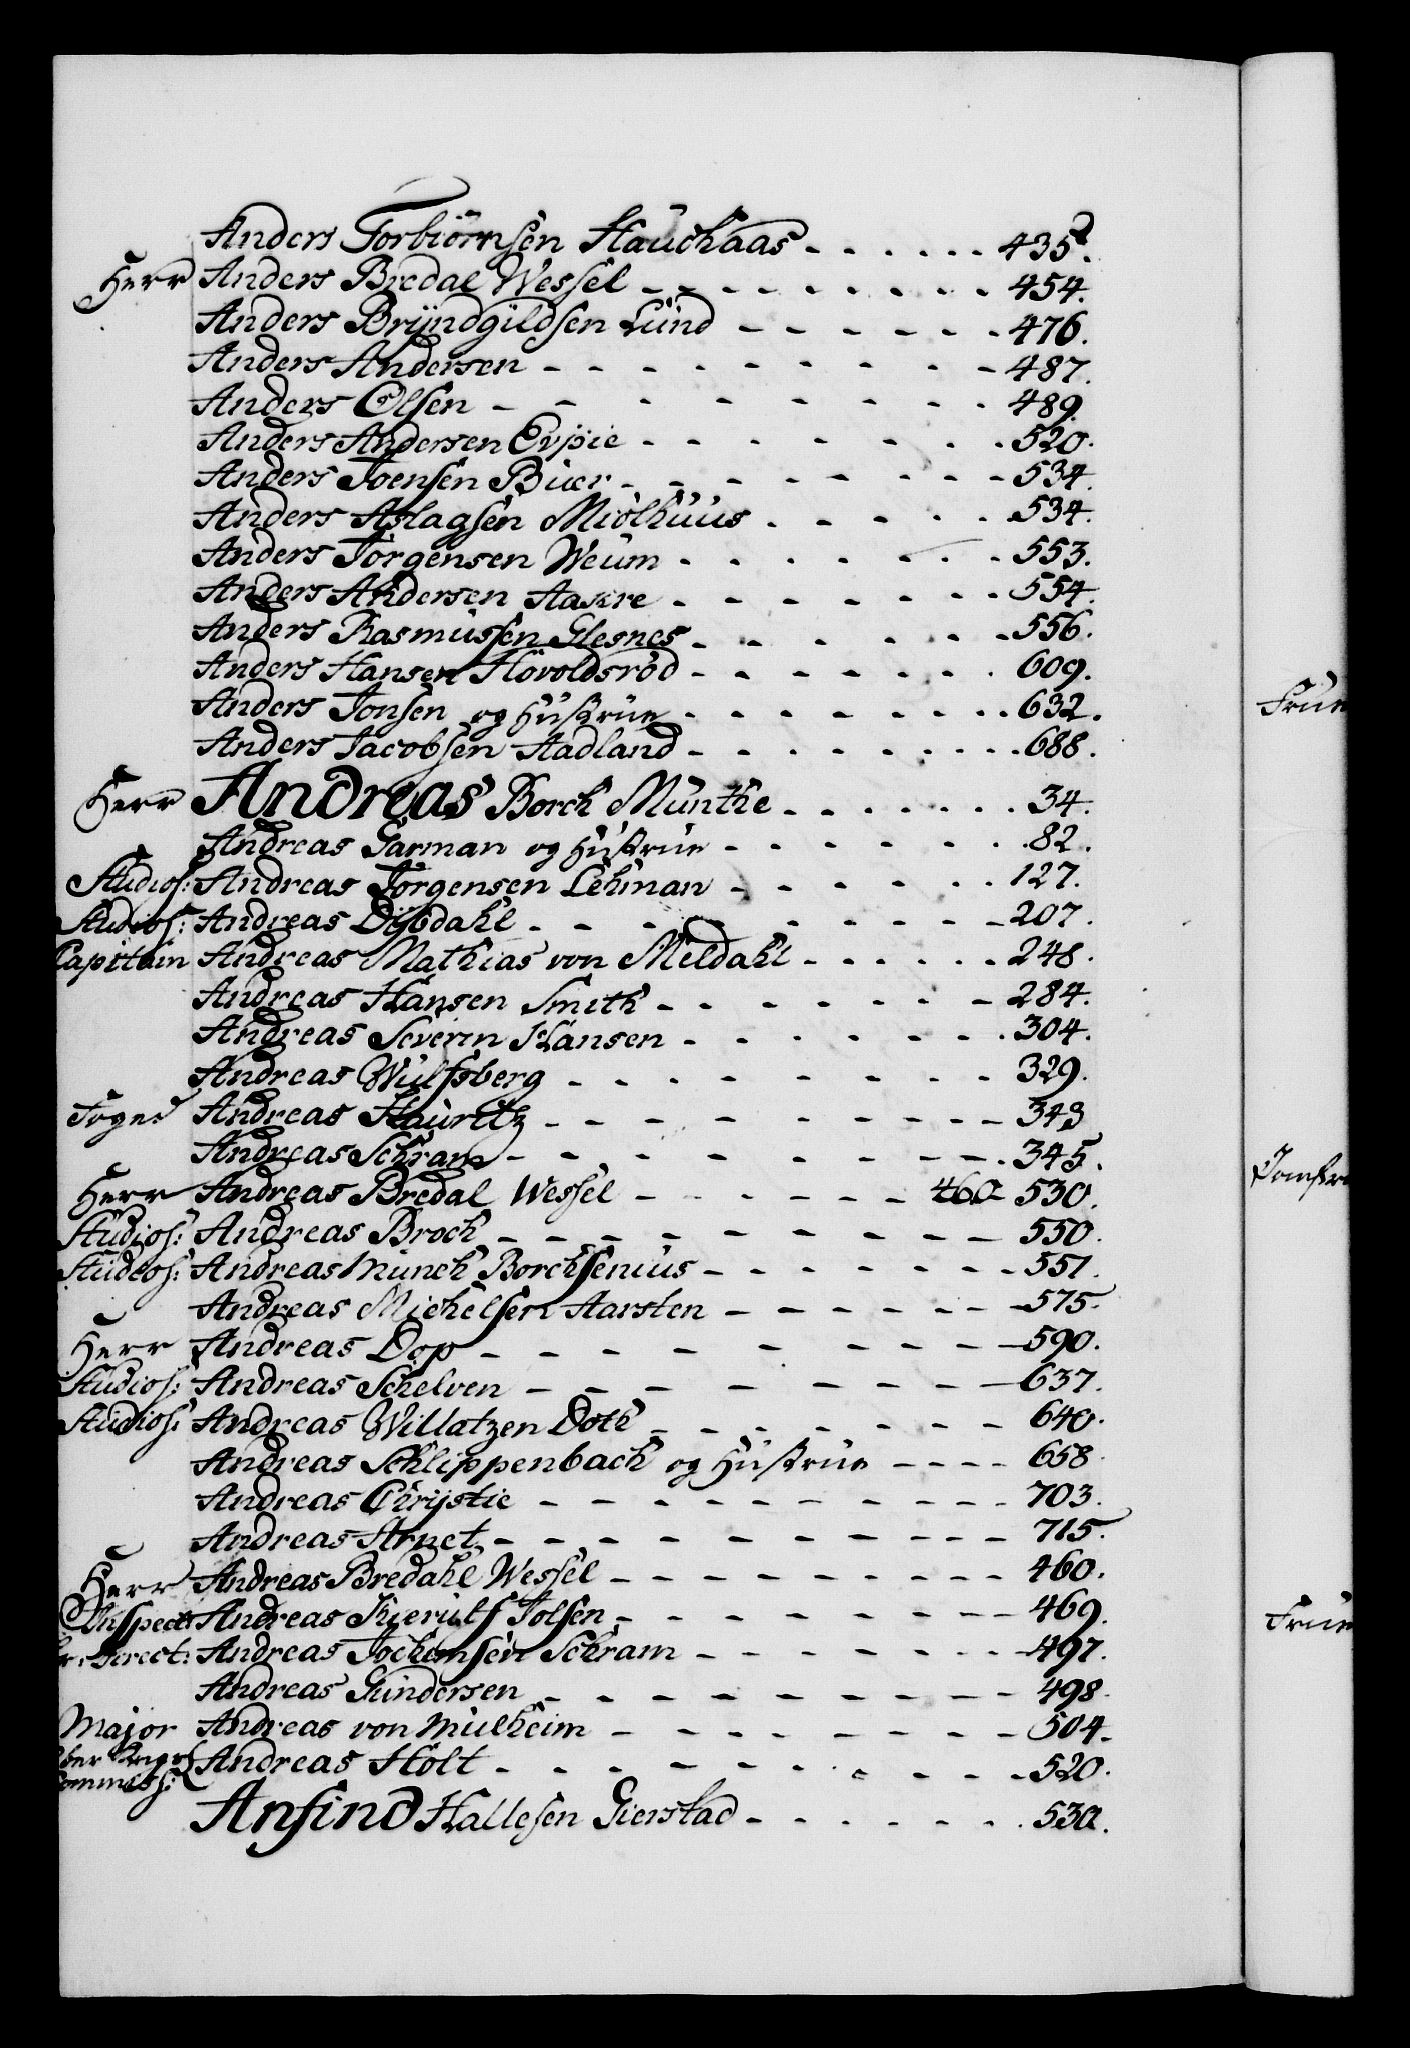 Anders Torbiörnsen Hauchaas - - - - - - 435.
Herr Anders Bredal Wessel - - - - - - - - - 454.
Anders Brÿndgildsen Lund - - - - - - 476.
Anders Andersen - - - - - - - - - 487.
Anders Olsen - - - - - - - - - 489.
Anders Andersen Evjie - - - - - - - - 520.
Anders Joensen Biær - - - - - - - - 534.
Anders Aslagsen Miölhuus - - - - - 534.
Anders Jörgensen Weum - - - - - - - 553.
Anders Andersen Aakre - - - - - - - 554.
Anders Rasmussen Glesnes - - - - - - - 556.
Anders Hansen Hövoldsröd - - - - - - - 609.
Anders Jonsen og Hustrue - - - - - - - - 632.
Anders Jacobsen Aadland - - - - - - - - - 688.
Herr Andreas Borch Munthe - - - - - - - 34.
Andreas Garman og Hustrue - - - - - - - 82.
Studios: Andreas Jörgensen Lehman - - - - - - 127.
Studios: Andreas Dÿbdahl - - - - - - - - - 207.
Capitain Andreas Mathias von Mildahl - - - - - - 248.
Andreas Hansen Smith - - - - - - - 284.
Andreas Severin Hansen - - - - - - - 304.
Andreas Wulfsberg - - - - - - - - - 329.
Foged Andreas Hauritz - - - - - - - - - 343
Andreas Schram - - - - - - - - - - 345.
Herr Andreas Bredal Wessel - - - - - - 460 530.
Studios: Andreas Broch - - - - - - - - - - 550.
Studios: Andreas Munch Borchsenius - - - - - - - 551.
Andreas Michelsen Aarsten - - - - - - - 575.
Herr Andreas Dop - - - - - - - - - 590.
Studios: Andreas Schelven - - - - - - - - 637.
Studios: Andreas Willatzen Doth - - - - - - - 640.
Andreas Schlippenbach og Hustrue - - - - 658.
Andreas Chrijstie - - - - - - - - - - 703.
Andreas Arnet - - - - - - - - - - 715.
Herr Andreas Bredahl Wessel - - - - - - - - - - 460.
Inspect: Andreas Kierulf Jolsen - - - - - - - - - 469.
Andreas Jochumsen Schram - - - - - - - - 497.
Andreas Gundersen - - - - - - - - - 498.
Major Andreas von Mulheim - - - - - - - - 504.
Andreas Holt - - - - - - - - - - 520.
Commiss:
Ansind Hallesen Gierstad - - - - - - - 530.
Frue
Jomfru
Frue